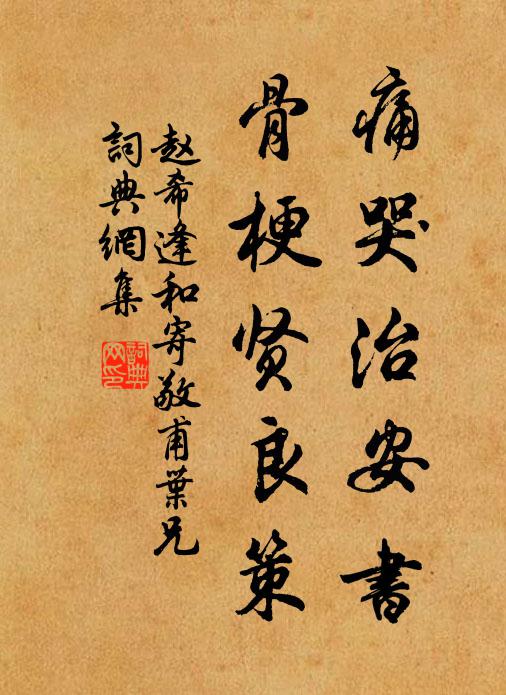 痛哭治安書
骨梗贤良策
赵希逢和寄敬甫葉兄
詞典網集
詞典网印